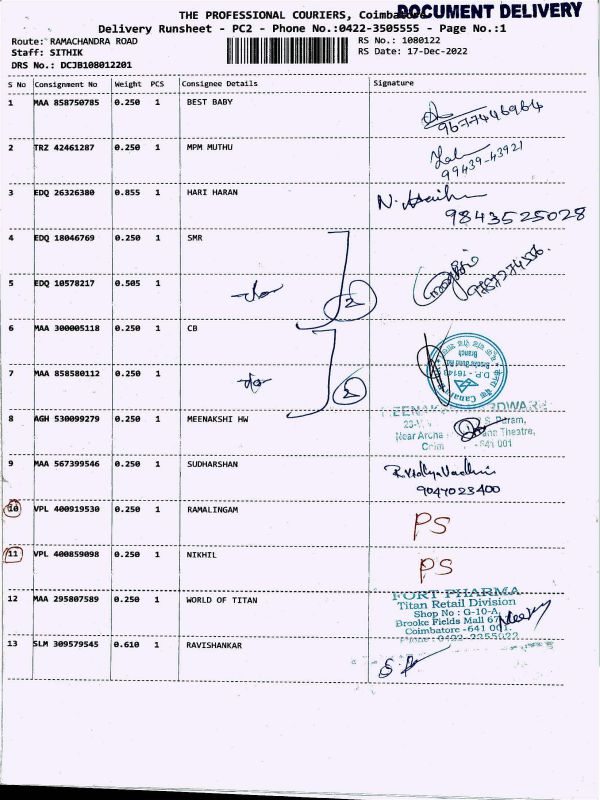 THE PROFESSIONAL COURIERS, Coimbatore
DOCUMENT DELIVERY
Delivery Runsheet - PC2 - Phone No.:0422-3505555 - Page No.:1
Route: RAMACHANDRA ROAD RS No.: 1080122
Staff: SITHIK RS Date: 17-Dec-2022
DRS No.: DCJB108012201
S No Consignment No Weight PCS Consignee Details Signature
1 MAA 858750785 0.250 1 BEST BABY
9677446964
2 TRZ 42461287 0.250 1 MPM MUTHU
99439-43921
3 EDQ 26326380 0.855 1 HARI HARAN
9843525028
4 EDQ 18046769 0.250 1 SMR
9787274556
5 EDQ 10578217 0.505 1 2
6 MAA 300005118 0.250 1 CB
7 MAA 858580112 0.250 1 2
D.P. - 16148
Branch
8 AGH 530099279 0.250 1 MEENAKSHI HW
Near Archa
Theatre,
641 001
9 MAA 567399546 0.250 1 SUDHARSHAN
9047023400
10 VPL 400919530 0.250 1 RAMALINGAM PS
11 VPL 400859098 0.250 1 NIKHIL PS
12 MAA 295807589 0.250 1 WORLD OF TITAN
FORT PHARMA
Titan Retail Division
Shop No : G-10-A,
Brooke Fields Mall 67
Coimbatore -641 001.
Phone : 0422-2255022
13 SLM 309579545 0.610 1 RAVISHANKAR